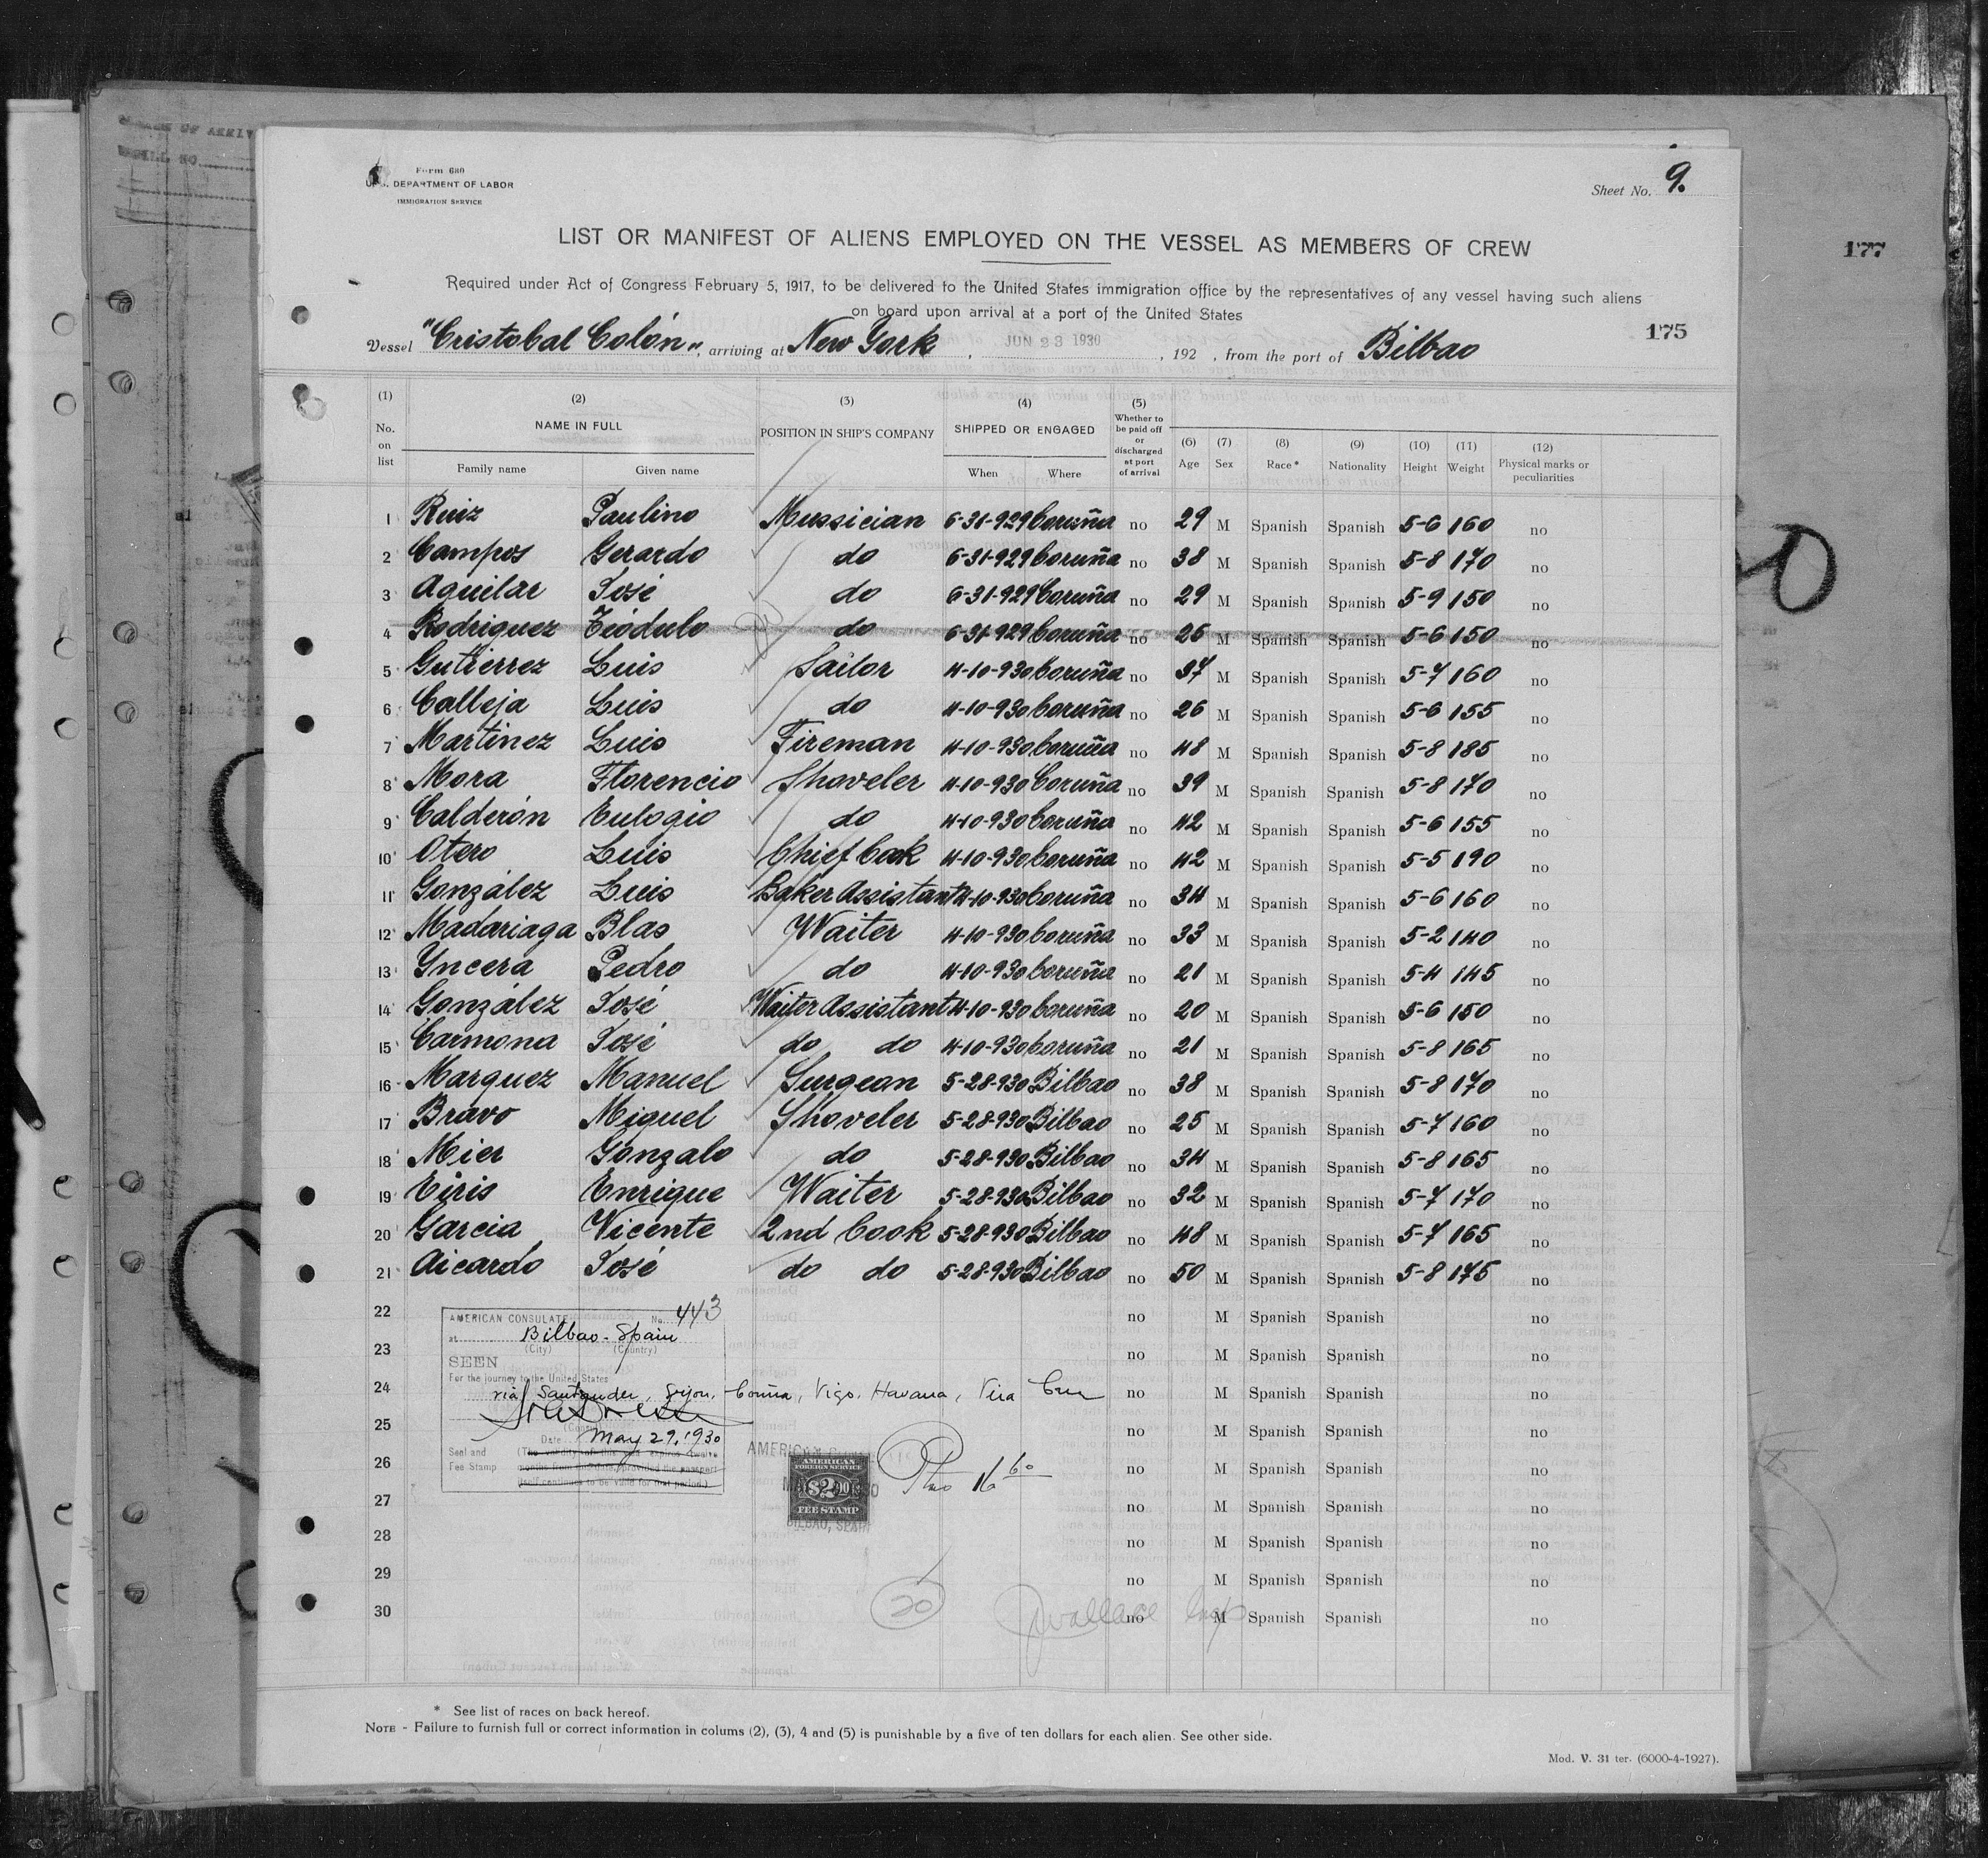 Form 680
U. S. DEPARTMENT OF LABOR
IMMIGRATION SERVICE
Sheet No. 9.
177
LIST OR MANIFEST OF ALIENS EMPLOYED ON THE VESSEL AS MEMBERS OF CREW
Required under Act of Congress February 5, 1917, to be delivered to the United States immigration office by the representatives of any vessel having such aliens
on board upon arrival at a port of the United States
175
Vessel "Cristobal Colón", arriving at New York, JUN 23 1930, 192 , from the port of Bilbao
(1) No. on list (2) NAME IN FULL Family name Given name (3) POSITION IN SHIP'S COMPANY (4) SHIPPED OR ENGAGED When Where (5) Whether to be paid off or discharged at port of arrival (6) Age (7) Sex (8) Race* (9) Nationality (10) Height (11) Weight (12) Physical marks or peculiarities
1 Ruiz Paulino Mussician 6-31-929 Coruña no 29 M Spanish Spanish 5-6 160 no
2 Campos Gerardo do 6-31-929 Coruña no 38 M Spanish Spanish 5-8 170 no
3 Aguilar José do 6-31-929 Coruña no 29 M Spanish Spanish 5-9 150 no
4 Rodriguez Teódulo do 6-31-929 Coruña no 26 M Spanish Spanish 5-6 150 no
5 Gutierrez Luis Sailor 4-10-930 Coruña no 37 M Spanish Spanish 5-7 160 no
6 Calleja Luis do 4-10-930 Coruña no 26 M Spanish Spanish 5-6 155 no
7 Martinez Luis Fireman 4-10-930 Coruña no 48 M Spanish Spanish 5-8 185 no
8 Mora Florencio Shoveler 4-10-930 Coruña no 39 M Spanish Spanish 5-8 170 no
9 Calderón Eulogio do 4-10-930 Coruña no 42 M Spanish Spanish 5-6 155 no
10 Otero Luis Chief Cook 4-10-930 Coruña no 42 M Spanish Spanish 5-5 190 no
11 González Luis Baker Assistant 4-10-930 Coruña no 34 M Spanish Spanish 5-6 160 no
12 Madariaga Blas Waiter 4-10-930 Coruña no 33 M Spanish Spanish 5-2 140 no
13 Yncera Pedro do 4-10-930 Coruña no 21 M Spanish Spanish 5-4 145 no
14 González José Waiter Assistant 4-10-930 Coruña no 20 M Spanish Spanish 5-6 150 no
15 Carmona José do do 4-10-930 Coruña no 21 M Spanish Spanish 5-8 165 no
16 Marquez Manuel Surgeon 5-28-930 Bilbao no 38 M Spanish Spanish 5-8 170 no
17 Bravo Miguel Shoveler 5-28-930 Bilbao no 25 M Spanish Spanish 5-7 160 no
18 Mier Gonzalo do 5-28-930 Bilbao no 34 M Spanish Spanish 5-8 165 no
19 Eiris Enrique Waiter 5-28-930 Bilbao no 32 M Spanish Spanish 5-7 170 no
20 Garcia Vicente 2nd Cook 5-28-930 Bilbao no 48 M Spanish Spanish 5-7 165 no
21 Aicardo José do do 5-28-930 Bilbao no 50 M Spanish Spanish 5-8 175 no
22 no M Spanish Spanish no
AMERICAN CONSULATE No. 443
at Bilbao - Spain
(City) (Country)
23 no M Spanish Spanish no
SEEN
For the journey to the United States
24 no M Spanish Spanish no
via Santander, Gijon, Coruña, Vigo, Havana, Vera Cruz
25 no M Spanish Spanish no
Date May 29, 1930
Seal and Fee Stamp
(The validity of this visa expires twelve
months from this date, provided the passport
itself continues to be valid for that period.)
26 no M Spanish Spanish no
AMERICAN
FOREIGN SERVICE
$2.00
FEE STAMP
BILBAO, SPAIN
Plus 16 60
27 no M Spanish Spanish no
28 no M Spanish Spanish no
29 no M Spanish Spanish no
30 no M Spanish Spanish no
20
Wallace Insp
* See list of races on back hereof.
NOTE - Failure to furnish full or correct information in colums (2), (3), 4 and (5) is punishable by a five of ten dollars for each alien. See other side.
Mod. V. 31 ter. (6000-4-1927).